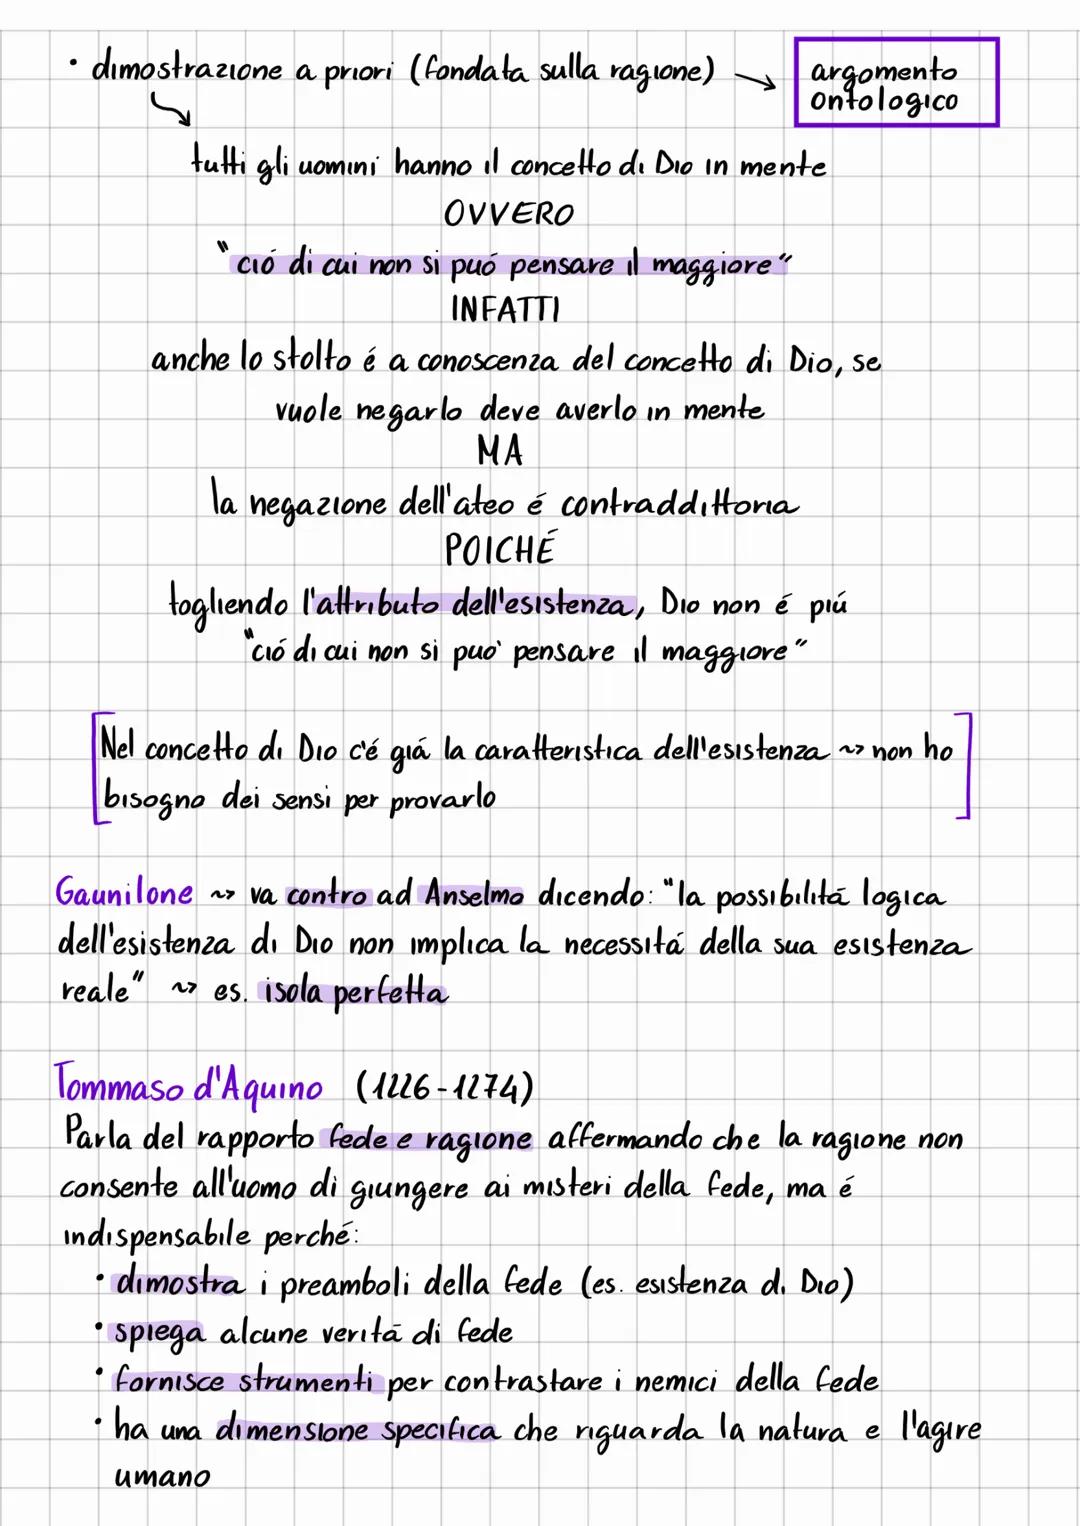 • dimostrazione a priori (fondata sulla ragione) → argomento
ontologico
tutti gli uomini hanno il concetto di Dio in mente
OVVERO
"ció di cui non si puó pensare il maggiore"
INFATTI
anche lo stolto é a conoscenza del concetto di Dio, se
vuole negarlo deve averlo in mente
MA
la negazione dell'ateo é contraddittoria
POICHÉ
togliendo l'attributo dell'esistenza, Dio non é piú
"ció di cui non si puo' pensare il maggiore"
[Nel concetto di Dio c'é giá la caratteristica dell'esistenza ~> non ho
bisogno dei sensi per provarlo]
Gaunilone ~> va contro ad Anselmo dicendo: "la possibilitá logica
dell'esistenza di Dio non implica la necessitá della sua esistenza
reale" ~> es. isola perfetta
Tommaso d'Aquino (1226-1274)
Parla del rapporto fede e ragione affermando che la ragione non
consente all'uomo di giungere ai misteri della fede, ma é
indispensabile perché:
• dimostra i preamboli della fede (es. esistenza di Dio)
• spiega alcune veritá di fede
• fornisce strumenti per contrastare i nemici della fede
• ha una dimensione specifica che riguarda la natura e l'agire
umano